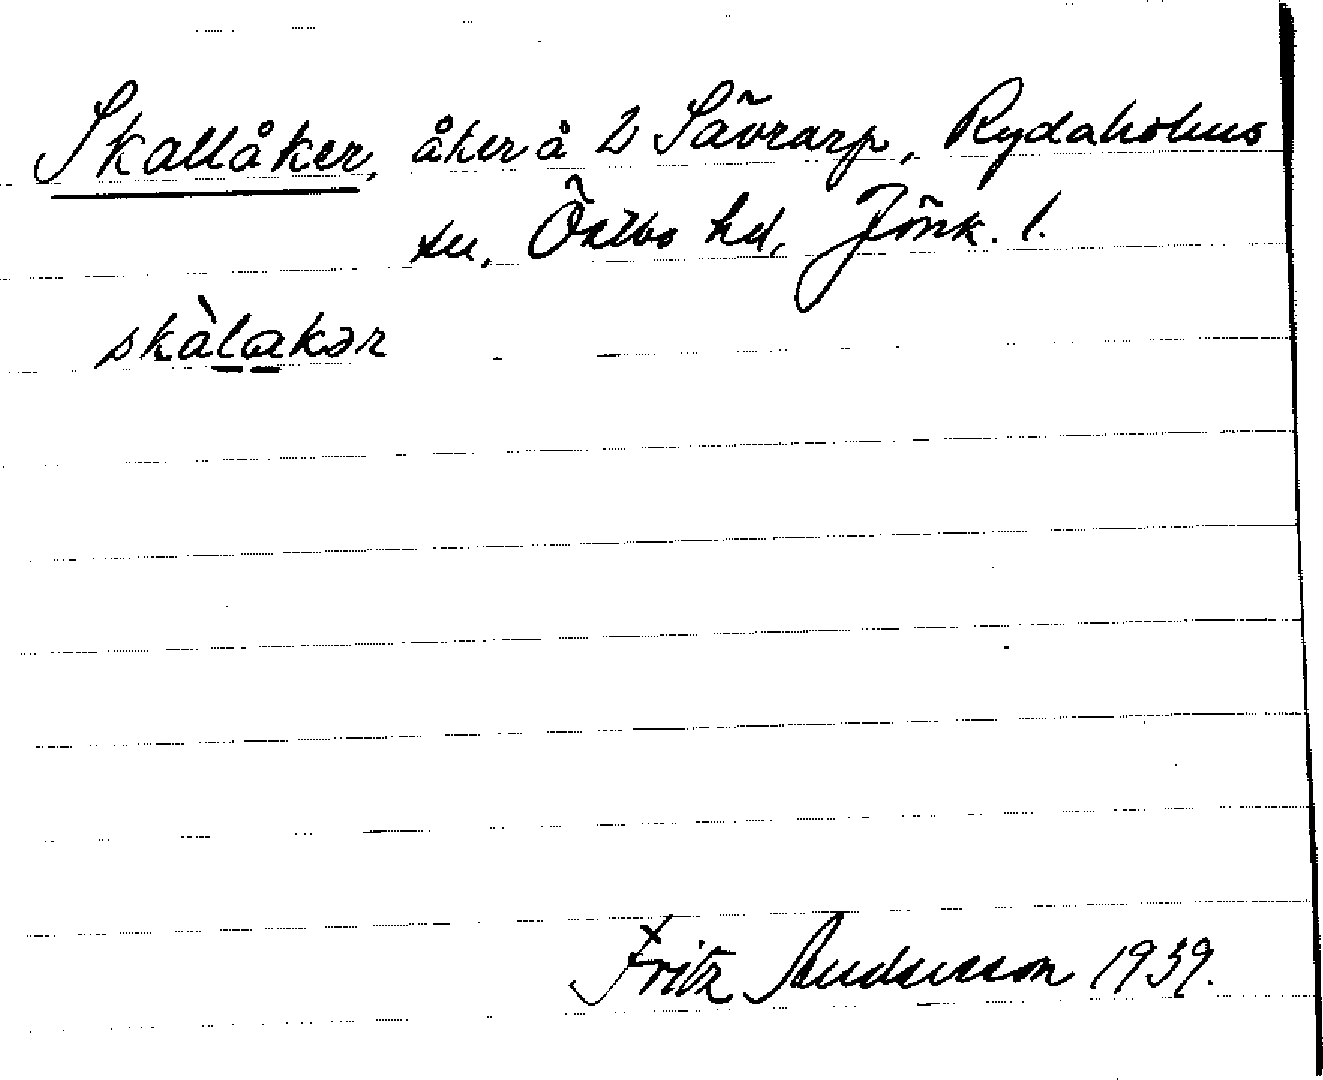 Skallåker, åker å 2 Sävrarp, Rydaholms
sn, Östbo hd, Jönk. l.
skàlakər
Fritz Andersson 1939.